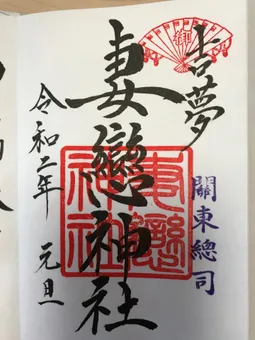 吉夢
關東總司
妻戀神社
令和二年 元旦
妻戀神社